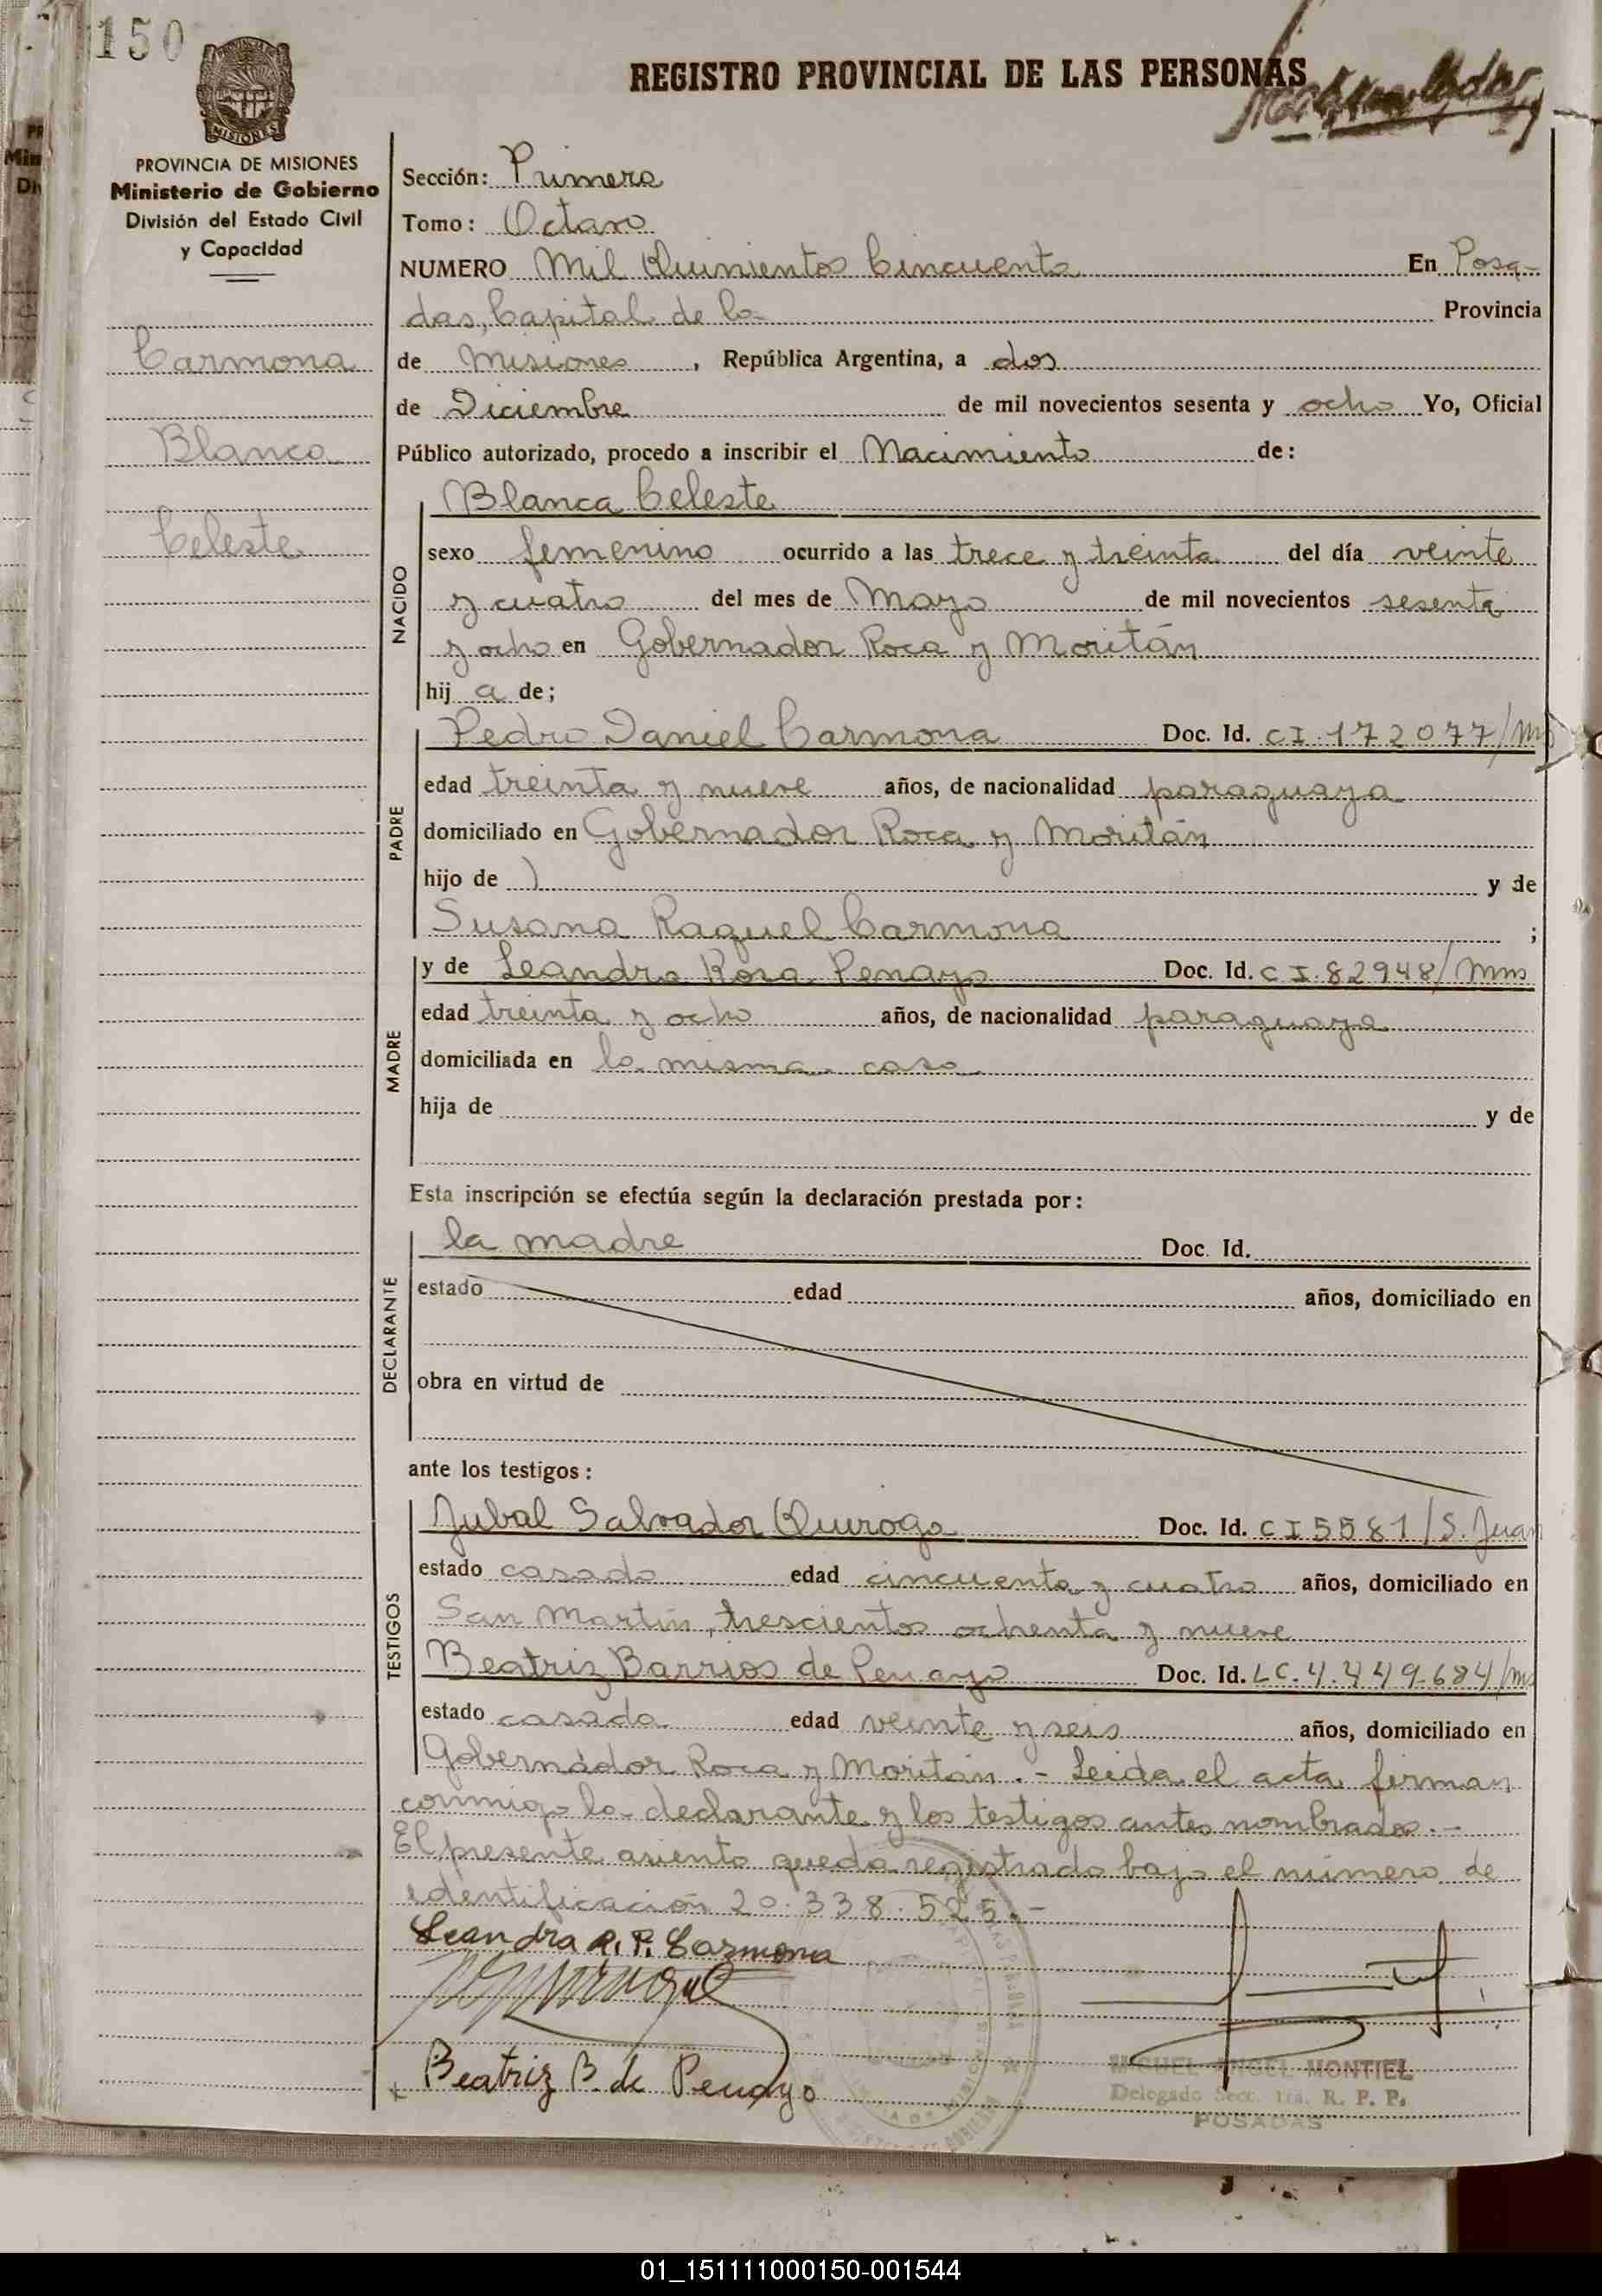 150
REGISTRO PROVINCIAL DE LAS PERSONAS
MISIONES
PROVINCIA DE MISIONES
Ministerio de Gobierno
División del Estado Civil
y Capacidad
Carmona
Blanca
Celeste
Sección: Primera
Tomo: Octavo
NUMERO Mil Quinientos Cincuenta En Posa-
das, Capital de la Provincia
de Misiones, República Argentina, a dos
de Diciembre de mil novecientos sesenta y ocho Yo, Oficial
Público autorizado, procedo a inscribir el Nacimiento de:
NACIDO
Blanca Celeste
sexo femenino ocurrido a las trece y treinta del día veinte
y cuatro del mes de Mayo de mil novecientos sesenta
y ocho en Gobernador Roca y Moritán
hij a de;
PADRE
Pedro Daniel Carmona Doc. Id. CI 172077/Mns
edad treinta y nueve años, de nacionalidad paraguaya
domiciliado en Gobernador Roca y Moritán
hijo de ) y de
Susana Raquel Carmona ;
MADRE
y de Leandra Rosa Penayo Doc. Id. CI.82948/Mns
edad treinta y ocho años, de nacionalidad paraguaya
domiciliada en la misma casa
hija de y de
Esta inscripción se efectúa según la declaración prestada por:
DECLARANTE
la madre Doc. Id.
estado edad años, domiciliado en
obra en virtud de
ante los testigos:
TESTIGOS
Jubal Salvador Quiroga Doc. Id. CI 5581/S. Juan
estado casado edad cincuenta y cuatro años, domiciliado en
San Martín, trescientos ochenta y nueve
Beatriz Barrios de Penayo Doc. Id. LC. 4.449.684/Mns
estado casada edad veinte y seis años, domiciliado en
Gobernador Roca y Moritán.- Leida el acta firman
conmigo la declarante y los testigos antes nombrados.-
El presente asiento queda registrado bajo el número de
identificación 20.338.525.-
Leandra R. P. Carmona
Beatriz B. de Penayo
MIGUEL ANGEL MONTIEL
Delegado Secc. 1ra. R. P. P.
POSADAS
01_151111000150-001544